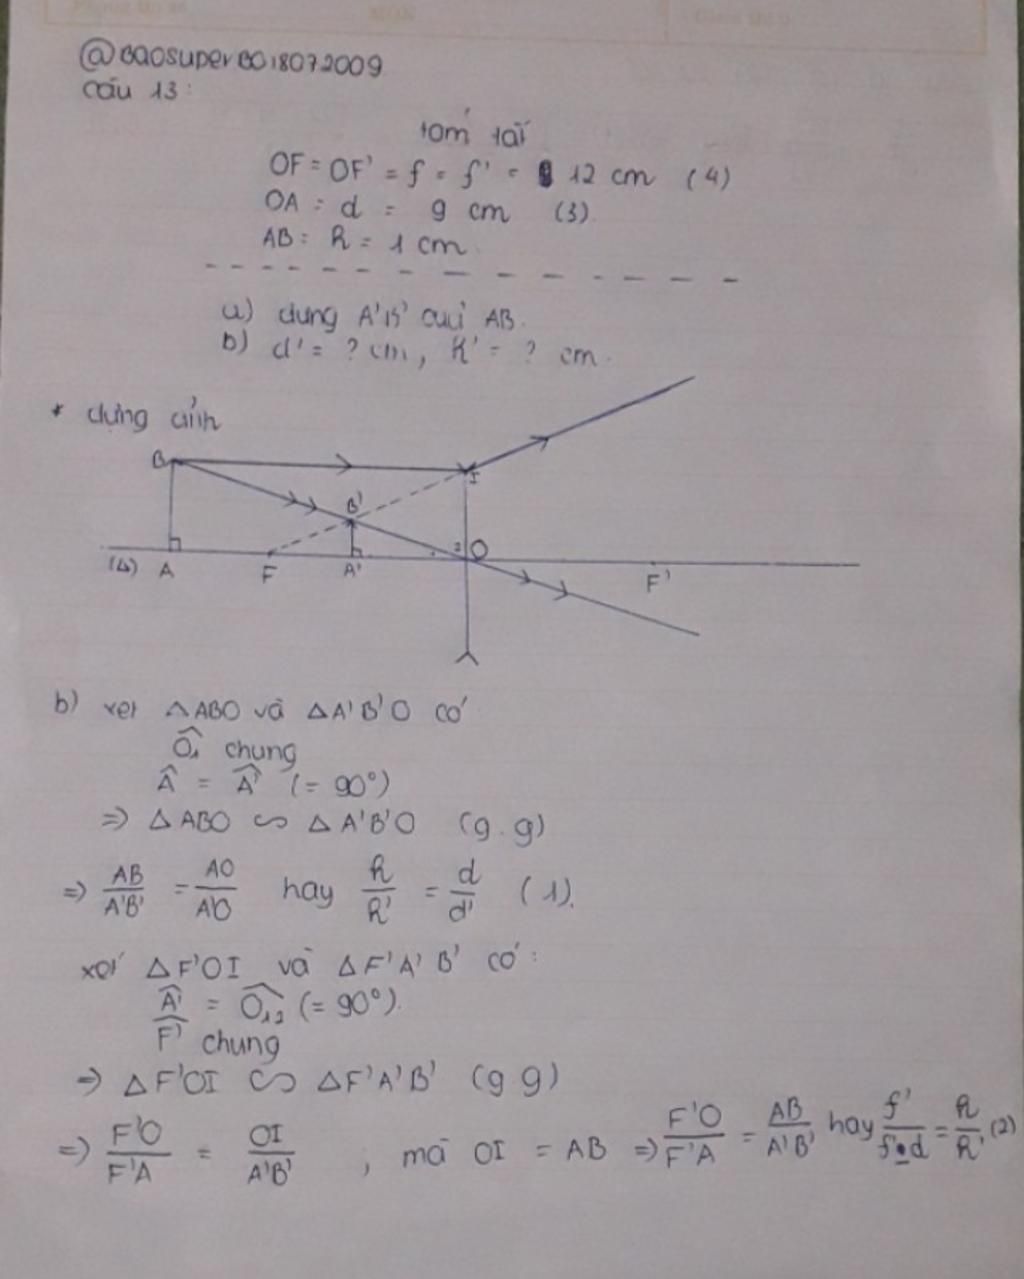 @baosuper8018072009
câu 13:
tóm tắt
OF = OF' = f = f' = 12 cm (4)
OA = d = 9 cm (3)
AB = h = 1 cm.
a) dựng A'B' của AB.
b) d' = ? cm, h' = ? cm.
* dựng ảnh
B I
B'
2 O
(Δ) A F A' F'
b) xét △ABO và △A'B'O có
Ô₁ chung
Â = Â' (= 90°)
=> △ABO ∽ △A'B'O (g.g)
=> AB/A'B' = AO/A'O hay h/h' = d/d' (1).
xét △F'OI và △F'A'B' có:
Â' = Ô₁₂ (= 90°).
F̂' chung
=> △F'OI ∽ △F'A'B' (g g)
=> F'O/F'A = OI/A'B' ; mà OI = AB => F'O/F'A = AB/A'B' hay f'/f'-d = h/h' (2)